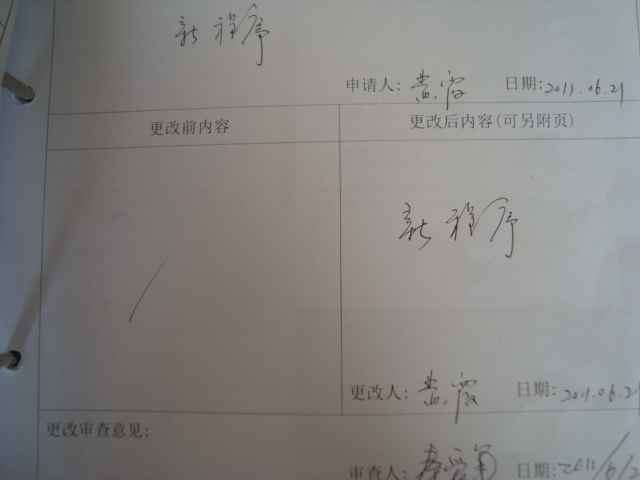 新程序
申请人: 黄霞 日期: 2011.06.21
更改前内容
更改后内容(可另附页)
/
新程序
更改人: 黄霞 日期: 2011.06.21
更改审查意见:
审查人: 日期: 2011/6/2